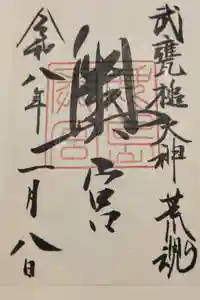 武甕槌大神 荒魂
奥宮
令和八年二月八日